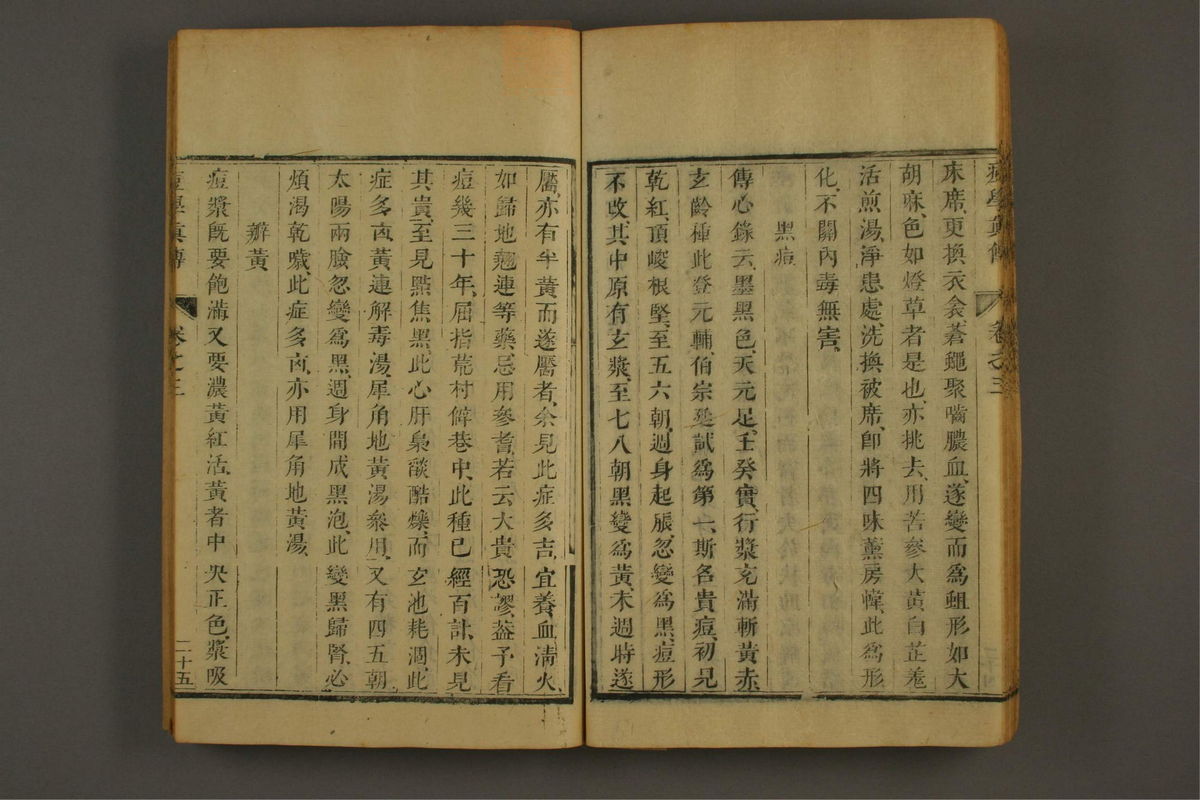 痘學眞傳 卷之三
床席、更換衣衾、蒼蠅聚嚙膿血、遂變而爲蛆、形如大
胡麻、色如燈草者是也、亦挑去、用苦參大黃白芷羌
活煎湯、淨患處、洗換被席、卽將四味薰房幃、此爲形
化、不關內毒無害、
黑痘
傳心錄云、墨黑色、天元足、壬癸實、行漿充滿斬黃赤
玄齡種此登元輔、伯宗廷試爲第一、斯名貴痘、初見
乾紅、頂峻根堅、至五六朝、週身起脹、忽變爲黑、痘形
不改、其中原有玄漿、至七八朝黑變爲黃、未週時遂
靨、亦有半黃而遂靨者、余見此症多吉、宜養血淸火、
如歸地翹連等藥、忌用參耆、若云大貴恐謬、葢予看
痘幾三十年、屈指荒村僻巷中、此種已經百計、未見
其貴、至見點焦黑、此心肝梟燄酷爍、而玄池耗涸、此
症多凶、黃連解毒湯、犀角地黃湯叅用、又有四五朝
太陽兩臉忽變爲黑、週身間成黑泡、此變黑歸腎、必
煩渴乾噦、此症多凶、亦用犀角地黃湯、
辨黃
痘漿旣要飽滿、又要濃黃紅活、黃者中央正色、漿吸
痘學眞傳 卷之三 二十五